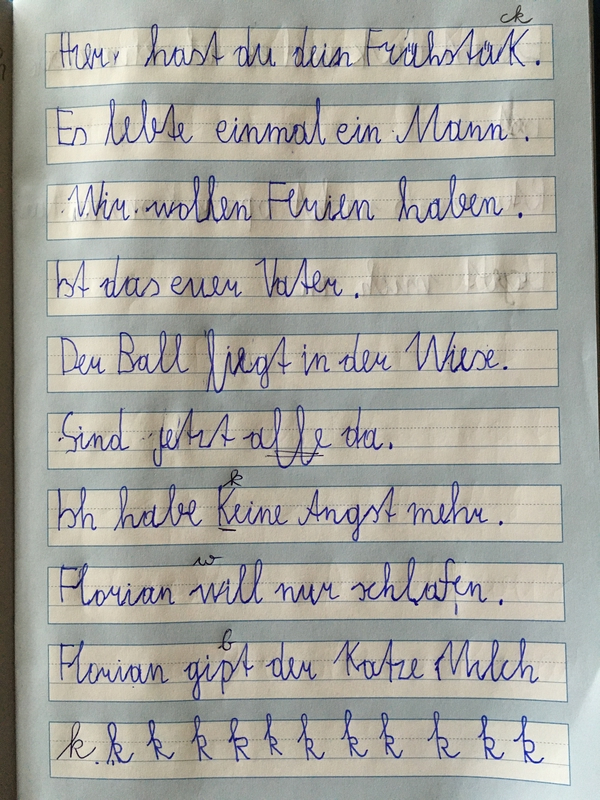 ck
Hier hast du dein FrühstüK.
Es lebte einmal ein Mann.
Wir wollen Ferien haben.
Ist das euer Vater.
Der Ball liegt in der Wiese.
Sind jetzt alle da.
k
Ich habe Keine Angst mehr.
w
Florian will nur schlafen.
b
Florian gipt der Katze Milch
k k k k k k k k k k k k